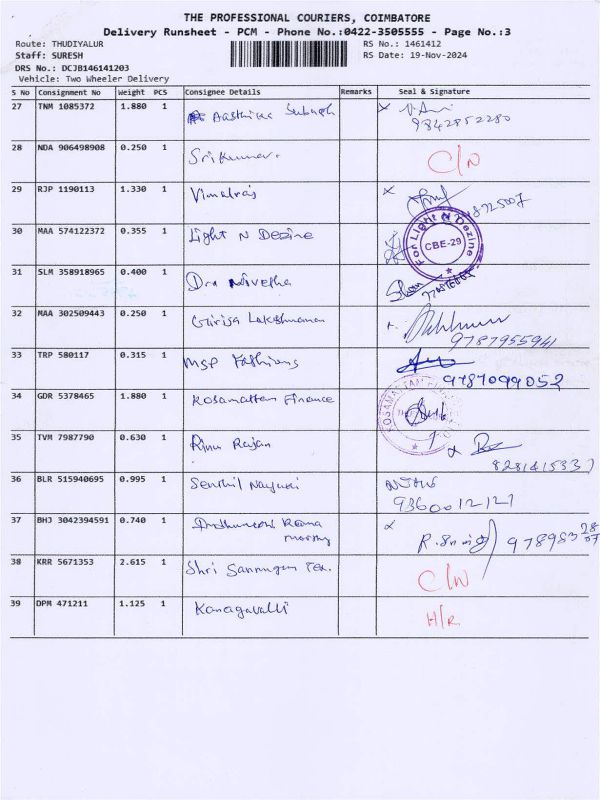 THE PROFESSIONAL COURIERS, COIMBATORE
Delivery Runsheet - PCM - Phone No.:0422-3505555 - Page No.:3
Route: THUDIYALUR
RS No.: 1461412
Staff: SURESH
RS Date: 19-Nov-2024
DRS No.: DCJB146141203
Vehicle: Two Wheeler Delivery
S No Consignment No Weight PCS Consignee Details Remarks Seal & Signature
27 TNM 1085372 1.880 1 Aasthika Subash
9842852280
28 NDA 906498908 0.250 1 Srikumar. C/N
29 RJP 1190113 1.330 1 Vimalraj
30 MAA 574122372 0.355 1 Light N Dezine For Light N Dezine CBE-29
31 SLM 358918965 0.400 1 Dra Nivetha
32 MAA 302509443 0.250 1 Girija Lakshmanan
9787955941
33 TRP 580117 0.315 1 MSP Fashions 9787099052
34 GDR 5378465 1.880 1 Kosamattam Finance KOSAMATTAM
35 TVM 7987790 0.630 1 Rinu Rajan
36 BLR 515940695 0.995 1 Senthil Nayaki
9360012121
37 BHJ 3042394591 0.740 1 Rama moorthy
38 KRR 5671353 2.615 1 Shri Tex. C/N
39 DPM 471211 1.125 1 Kanagavalli H/R